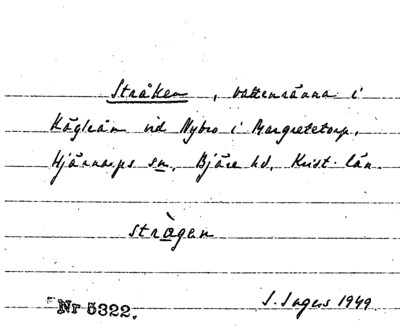 Stråken, vattenränna i
Kägleån vid Nybro i Margretetorp,
Hjärnarps sn, Bjäre hd, Krist. län.
stràgen
Nr 5322.
S. Ingers 1949